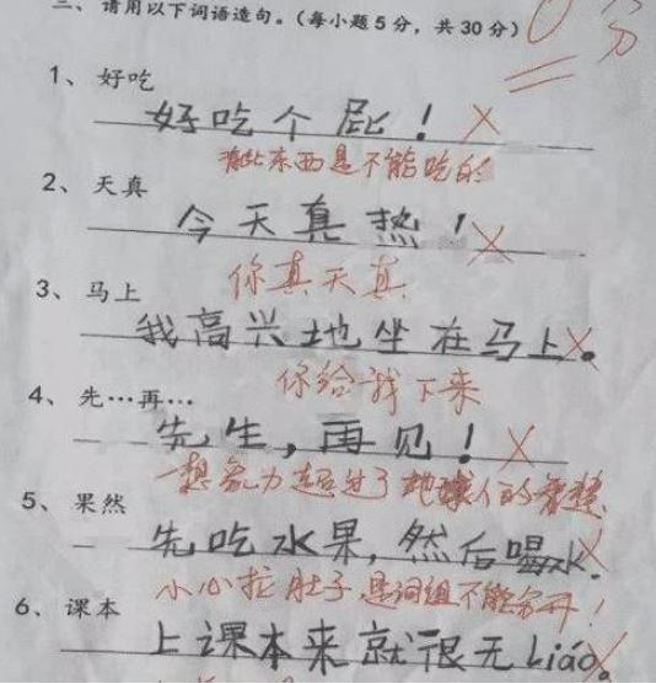 二、请用以下词语造句。(每小题5分，共30分)
0分
1、好吃
好吃个屁！
有些东西是不能吃的
2、天真
今天真热！
你真天真
3、马上
我高兴地坐在马上。
你给我下来
4、先…再…
先生，再见！
想象力超过了地球人的智慧
5、果然
先吃水果，然后喝水。
小心拉肚子，是词组不能分开！
6、课本
上课本来就很无liáo。